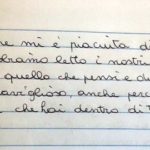 me mi è piaciuta di
letto i nostri
quello che pensi e di
anche perc
che hai dentro di